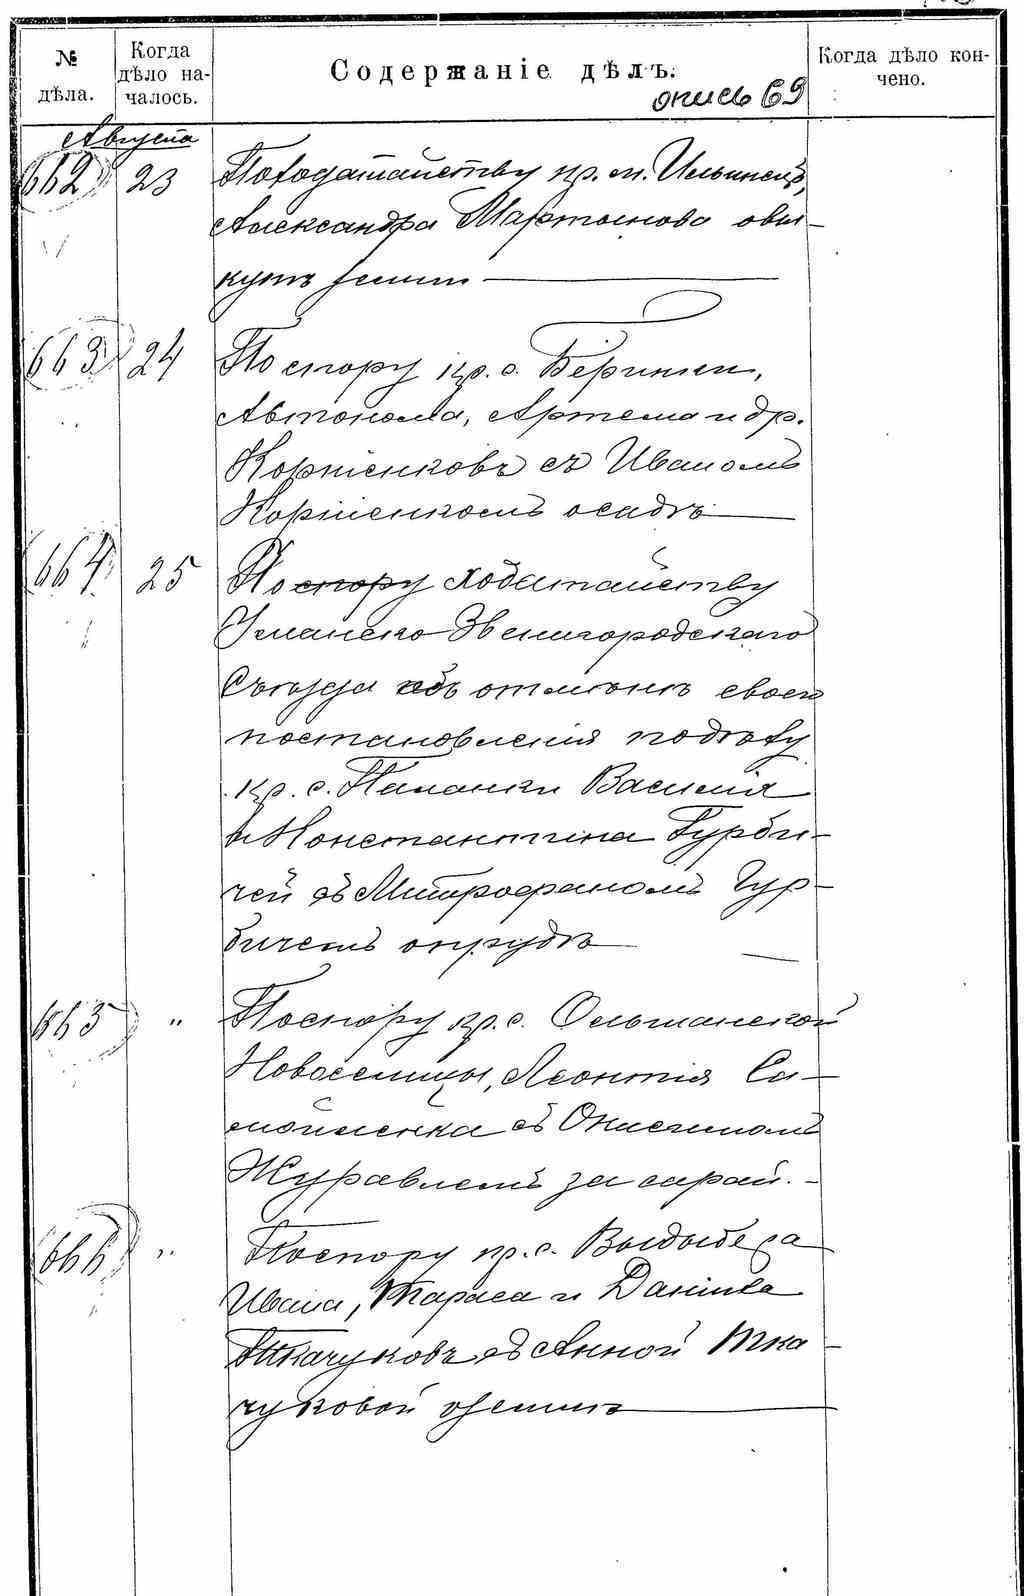 № дѣла.
Когда дѣло на-
чалось.
Содержаніе дѣлъ.
опись 69
Когда дѣло кон-
чено.
Августа
662 23 По ходатайству кр. м. Ильинец,
Александра Мартынова о вы-
купѣ земли
663 24 По спору кр. с.
Автонома, Артема и др.
Корженковъ съ Иваномъ
Корженкомъ о садѣ
664 25 По спору ходатайству
Уманско-Звенигородскаго
Съѣзда объ отмѣнѣ своего
постановленія по дѣлу
кр. с. Паланки Василія
и Константина Гурби-
чей съ Митрофаномъ Гур-
бичемъ о прудѣ
665 " По спору кр. с. Ольшанской
Новоселицы, Леонтія Са-
мойленка съ Онисимомъ
Журавлемъ за сарай.
666 " По спору кр. с.
Ивана, Тараса и Данила
Ткачуковъ съ Анной Тка-
чуковой о землѣ